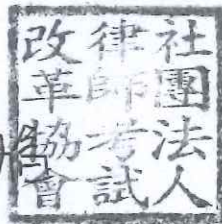 社團法人
律師考試
改革協會